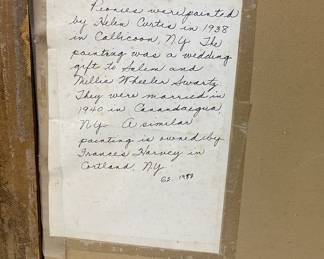 Peonies were painted
by Helen Curtis in 1938
in Callicoon, NY. The
painting was a wedding
gift to Salem and
Nellie Wheeler Swartz
They were married in
1940 in Canandaigua
NY. A similar
painting is owned by
Frances Harvey in
Cortland, NY